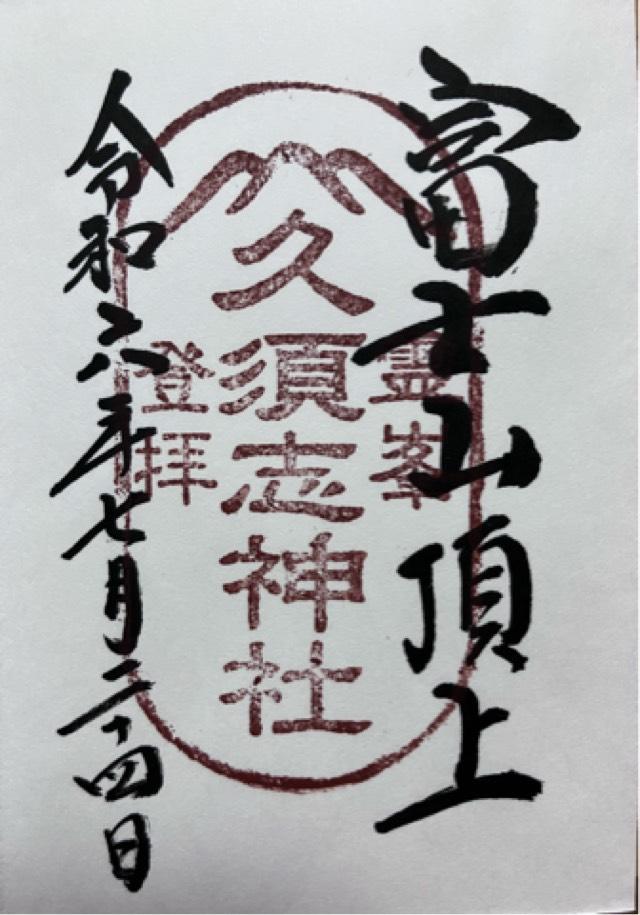 富士山頂上
霊峯
久須志神社
登拝
令和六年七月二十四日